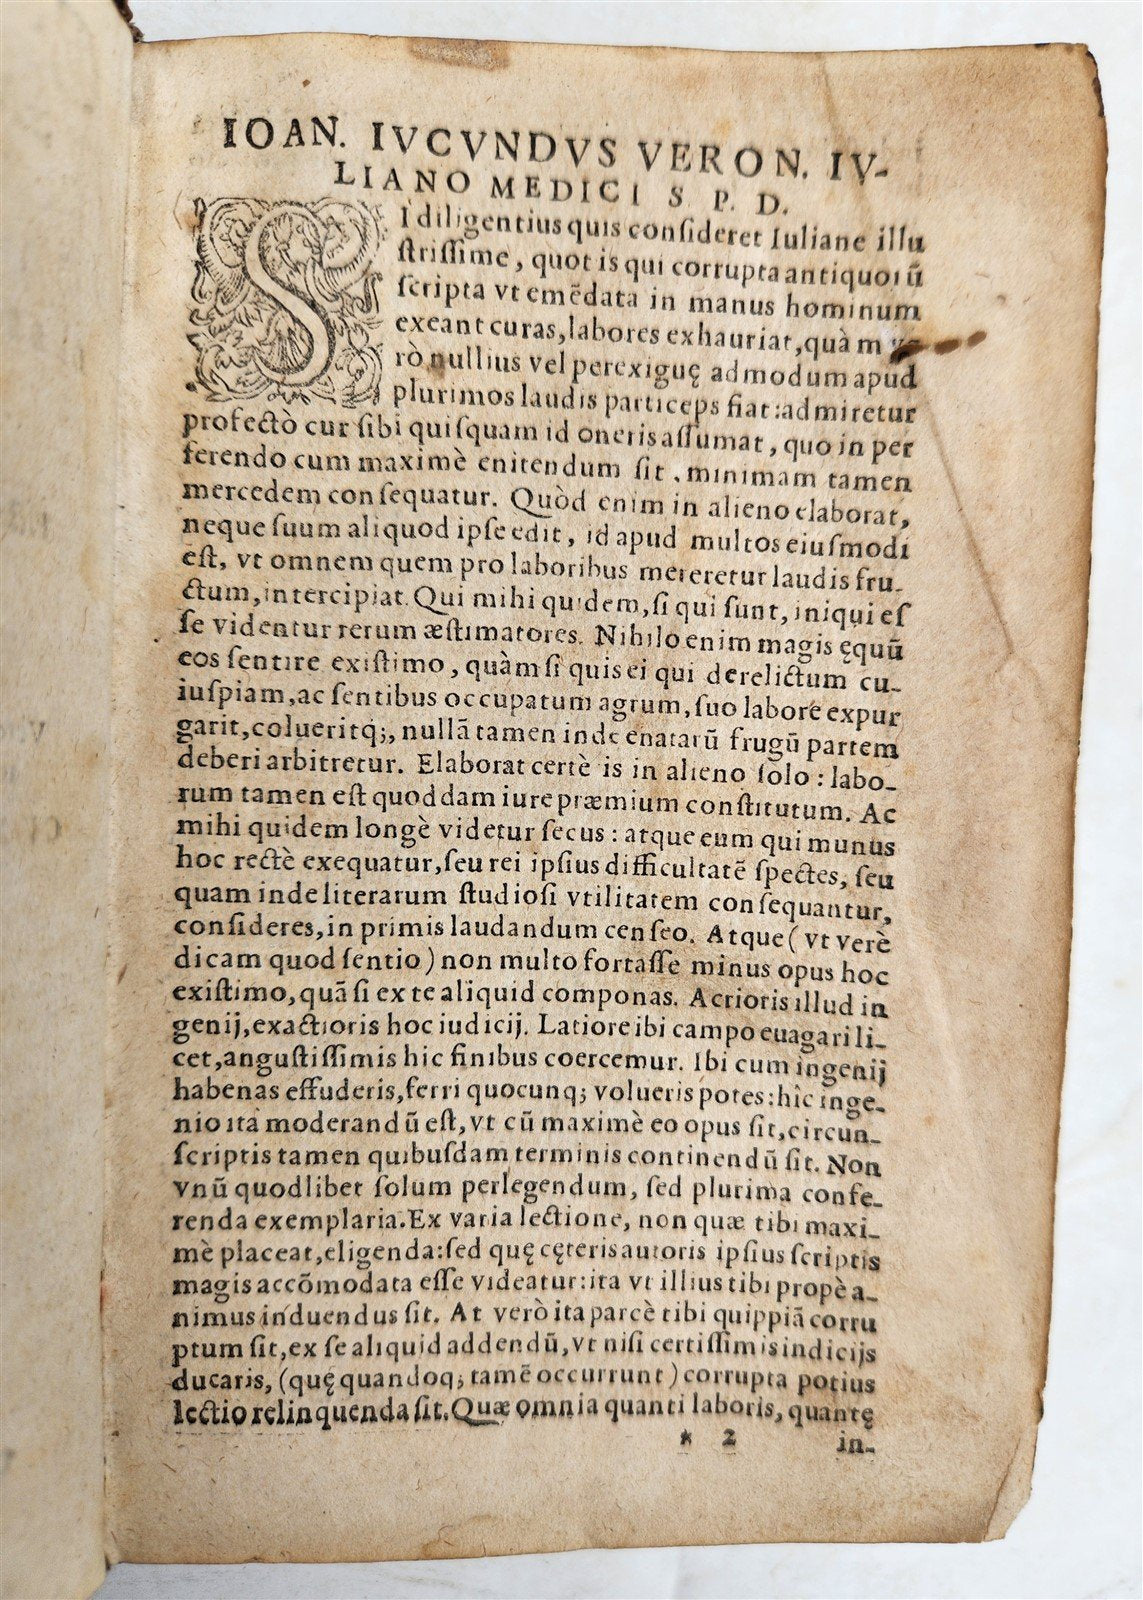 IOAN. IVCVNDVS VERON. IV-
LIANO MEDICI S P. D.
SI diligentius quis consideret Iuliane illu
strissime, quot is qui corrupta antiquorũ
scripta vt emẽdata in manus hominum
exeant curas, labores exhauriat, quàm ve
rò nullius vel perexiguę admodum apud
plurimos laudis particeps fiat: admiretur
profectò cur sibi quisquam id oneris assumat, quo in per
ferendo cum maximè enitendum sit, minimam tamen
mercedem consequatur. Quòd enim in alieno elaborat,
neque suum aliquod ipse edit, id apud multos eiusmodi
est, vt omnem quem pro laboribus mereretur laudis fru-
ctum, intercipiat. Qui mihi quidem, si qui sunt, iniqui es
se videntur rerum æstimatores. Nihilo enim magis ęquũ
eos sentire existimo, quàm si quis ei qui derelictum cu-
iuspiam, ac sentibus occupatum agrum, suo labore expur
garit, colueritq;, nullã tamen inde enatarũ frugũ partem
deberi arbitretur. Elaborat certè is in alieno solo: labo-
rum tamen est quoddam iure præmium constitutum. Ac
mihi quidem longè videtur secus: atque eum qui munus
hoc rectè exequatur, seu rei ipsius difficultatẽ spectes, seu
quam inde literarum studiosi vtilitatem consequantur,
consideres, in primis laudandum censeo. Atque ( vt verè
dicam quod sentio ) non multo fortasse minus opus hoc
existimo, quã si ex te aliquid componas. Acrioris illud in
genij, exactioris hoc iudicij. Latiore ibi campo euagari li-
cet, angustissimis hic finibus coercemur. Ibi cum ingenij
habenas effuderis, ferri quocunq; volueris potes: hîc inge-
nio ita moderandũ est, vt cũ maximè eo opus sit, circun-
scriptis tamen quibusdam terminis continendũ sit. Non
vnũ quodlibet solum perlegendum, sed plurima confe-
renda exemplaria. Ex varia lectione, non quæ tibi maxi-
mè placeat, eligenda: sed quę cęteris autoris ipsius scriptis
magis accõmodata esse videatur: ita vt illius tibi propè a-
nimus induendus sit. At verò ita parcè tibi quippiã corru
ptum sit, ex se aliquid addendũ, vt nisi certissimis indicijs
ducaris, (quę quandoq; tamẽ occurrunt ) corrupta potius
lectio relinquenda sit. Quæ omnia quanti laboris, quantę
* 2 in-